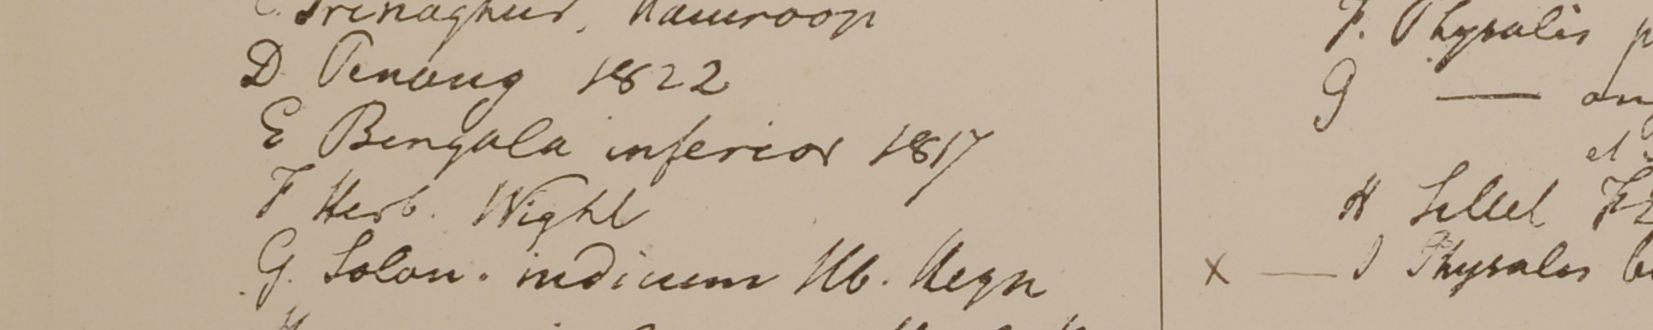 C. Srinaghur, Kamroop
D Penang 1822
E Bengala inferior 1817
F Herb. Wight
G. Solan. indicum Hb. Heyn
F. Physalis
G —
et
H Sillet
x — I Physalis